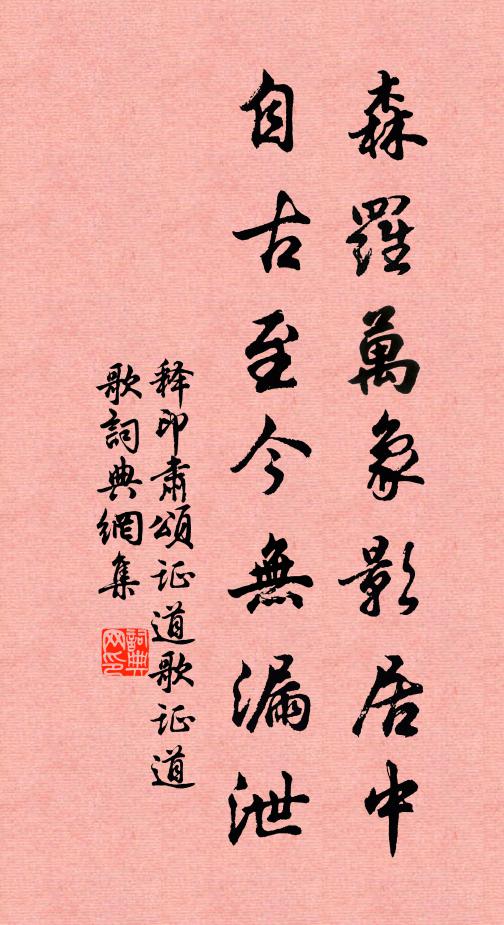 森羅萬象影居中
自古至今無漏泄
释印肃頌证道歌证道
歌詞典網集
詞典網印